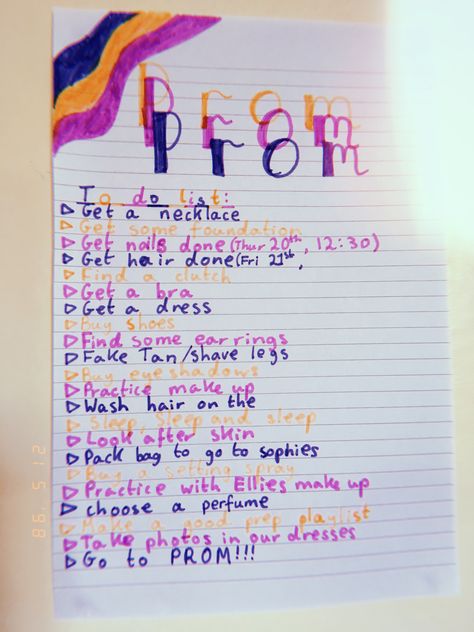 Prom
Prom
Prom
To do list:
▷ Get a necklace
▷ Get some foundation
▷ Get nails done (Thur 20th, 12:30)
▷ Get hair done (Fri 21st,
▷ Find a clutch
▷ Get a bra
▷ Get a dress
▷ Buy shoes
▷ Find some earrings
▷ Fake Tan/shave legs
▷ Buy eyeshadows
▷ Practice make up
▷ Wash hair on the
▷ Sleep, Sleep and sleep
▷ Look after skin
▷ Pack bag to go to sophies
▷ Buy a setting spray
▷ Practice with Ellies make up
▷ choose a perfume
▷ Make a good prep playlist
▷ Take photos in our dresses
▷ Go to PROM!!!
'98 5 12